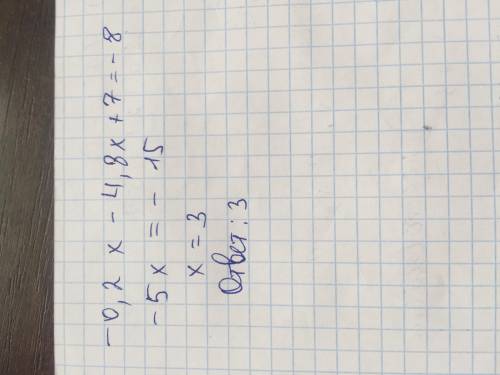 -0,2x - 4,8x + 7 = -8
-5x = -15
x = 3
Ответ: 3